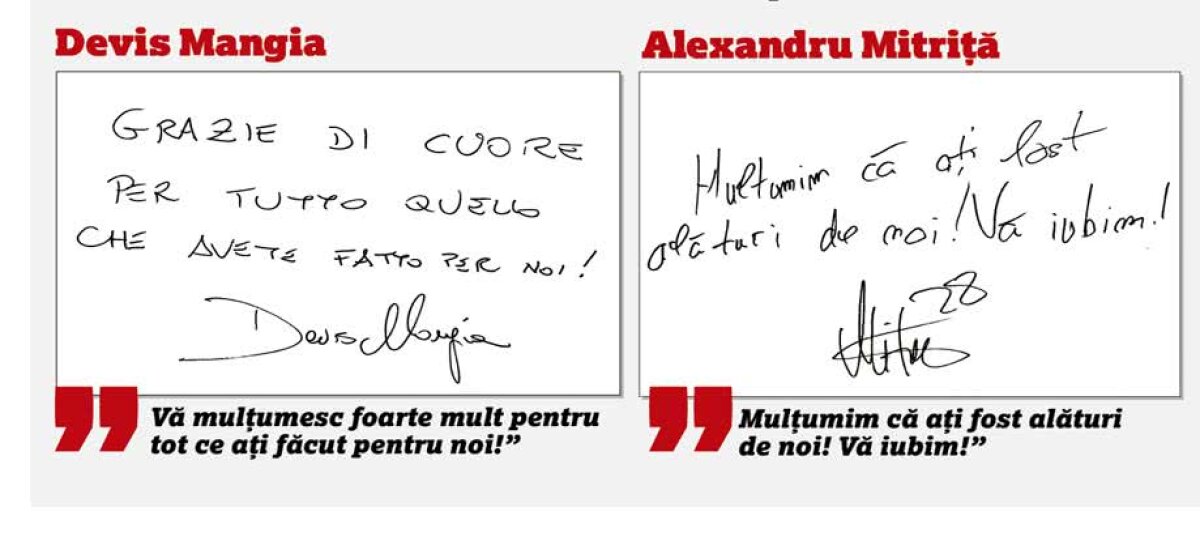 Devis Mangia
GRAZIE DI CUORE
PER TUTTO QUELLO
CHE AVETE FATTO PER NOI!
Devis Mangia
Vă mulțumesc foarte mult pentru
tot ce ați făcut pentru noi!”
Alexandru Mitriță
Multumim că ați fost
alături de noi! Vă iubim!
28
Mulțumim că ați fost alături
de noi! Vă iubim!”